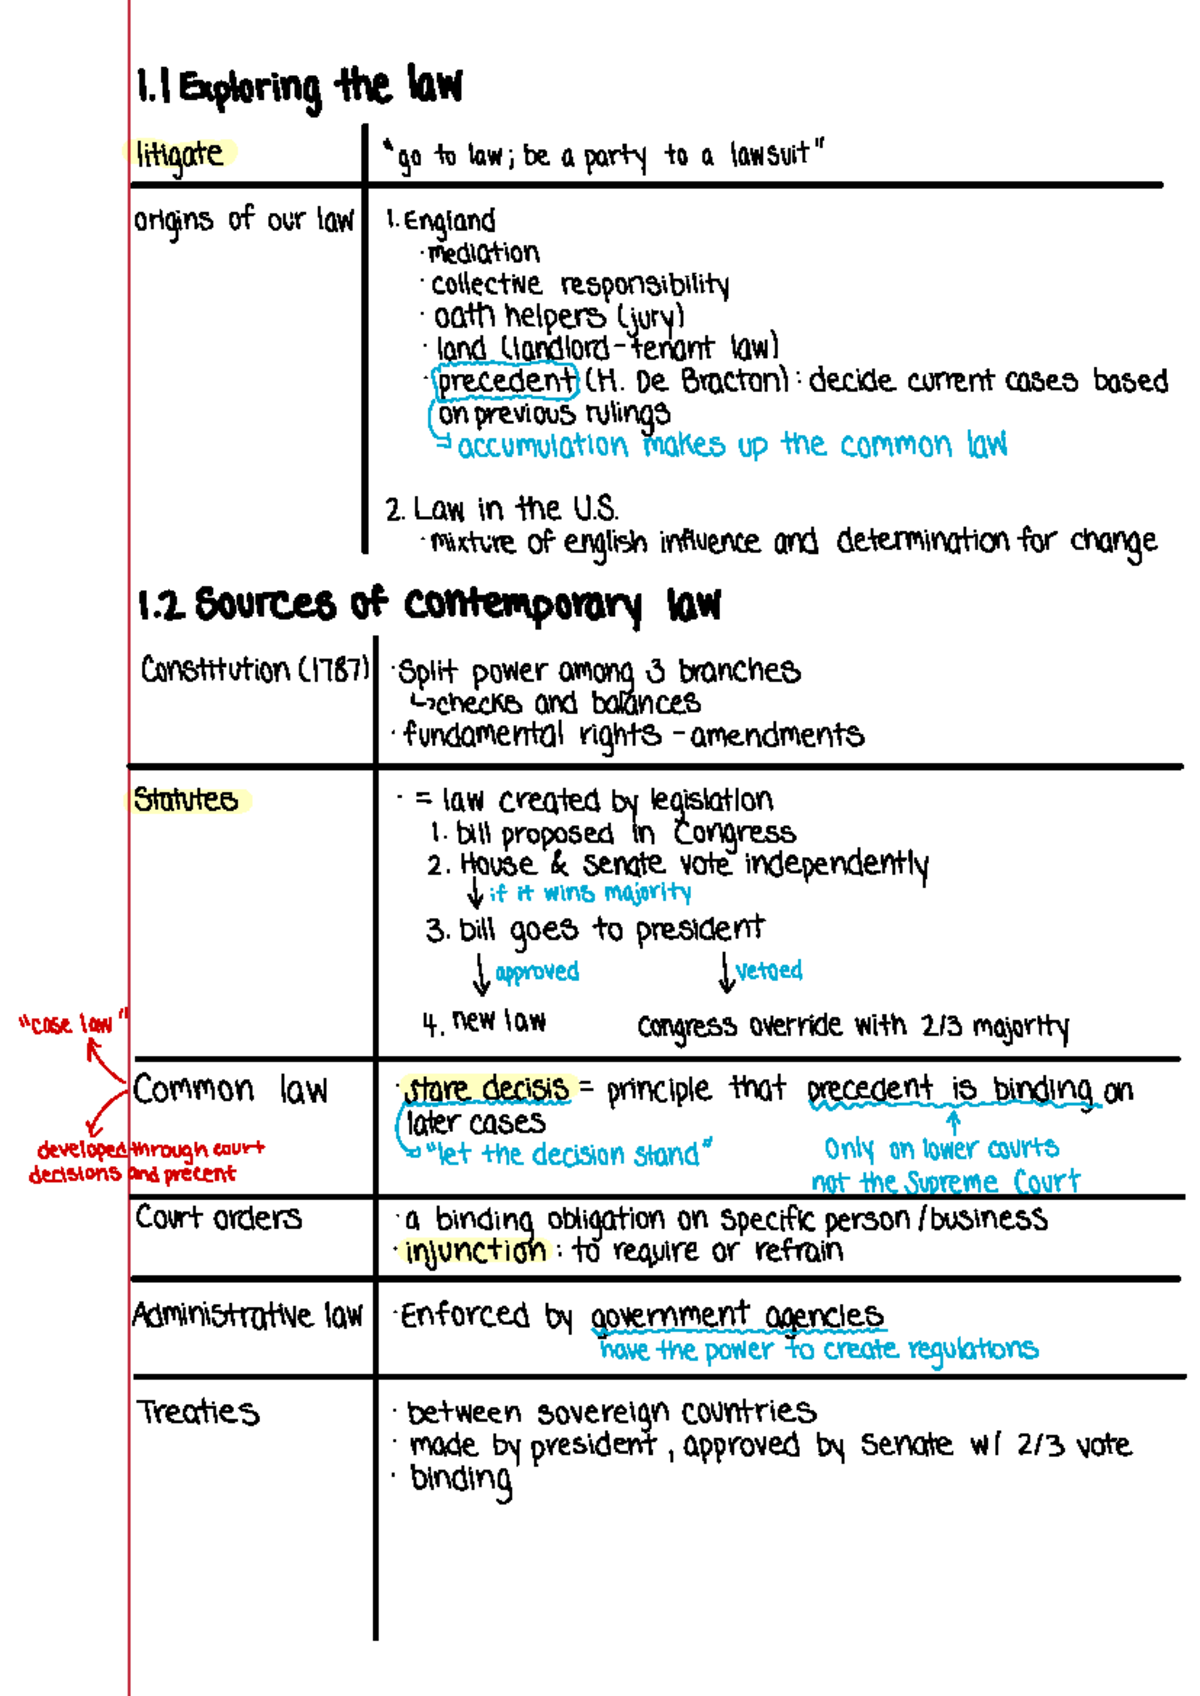 1.1 Exploring the law
litigate
"go to law; be a party to a lawsuit"
origins of our law
1. England
· mediation
· collective responsibility
· oath helpers (jury)
· land (landlord-tenant law)
· precedent (H. De Bracton): decide current cases based
on previous rulings
→ accumulation makes up the common law
2. Law in the U.S.
· mixture of english influence and determination for change
1.2 Sources of contemporary law
Constitution (1787)
· Split power among 3 branches
↳ checks and balances
· fundamental rights - amendments
Statutes
· = law created by legislation
1. bill proposed in Congress
2. House & Senate vote independently
↓ if it wins majority
3. bill goes to president
↓ approved ↓ vetoed
4. new law Congress override with 2/3 majority
"case law"
Common law
developed through court
decisions and precent
· stare decisis = principle that precedent is binding on
later cases
→ "let the decision stand"
↑
Only on lower courts
not the Supreme Court
Court orders
· a binding obligation on specific person/business
· injunction: to require or refrain
Administrative law
· Enforced by government agencies
have the power to create regulations
Treaties
· between sovereign countries
· made by president, approved by Senate w/ 2/3 vote
· binding